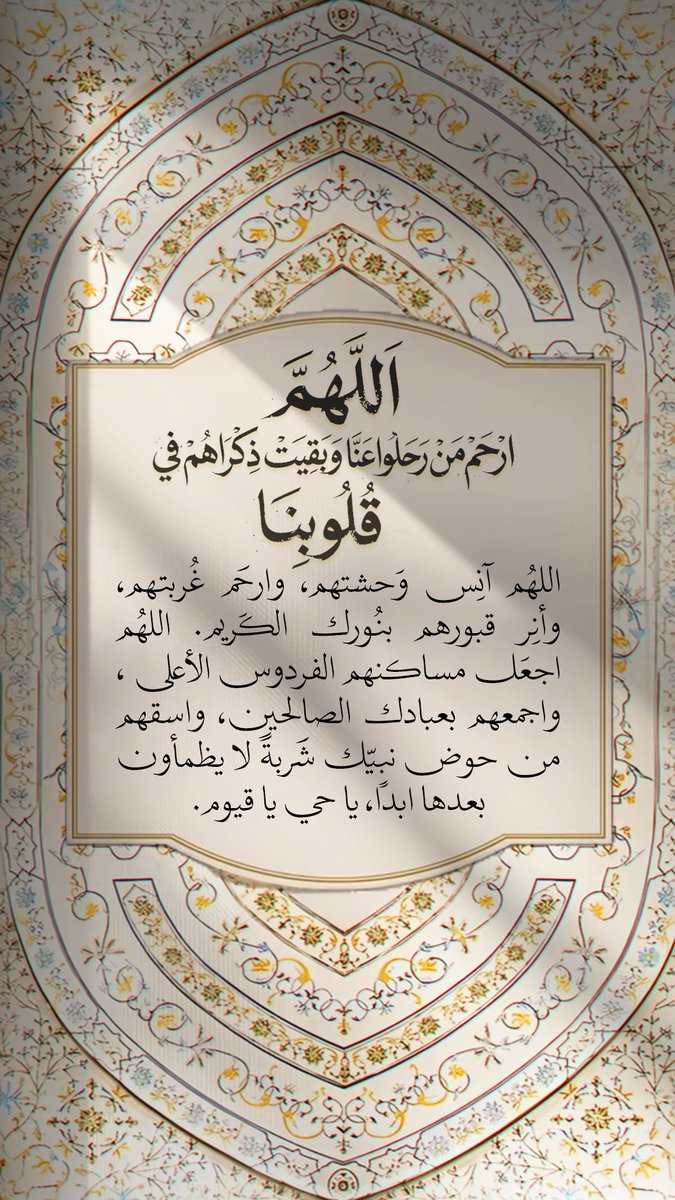 اَللَّهُمَّ
ارْحَمْ مَنْ رَحَلُوا عَنَّا وَبَقِيَتْ ذِكْرَاهُمْ فِي
قُلُوبِنَا
اللهُم آنِس وَحشتهم، وارحَم غُربتهم،
وأنِر قبورهم بنُورك الكَريم. اللهُم
اجعَل مساكنهم الفردوس الأعلى ،
واجمعهم بعبادك الصالحين، واسقهم
من حوض نبيّك شَربةً لا يظمأون
بعدها ابدًا، يا حي يا قيوم.